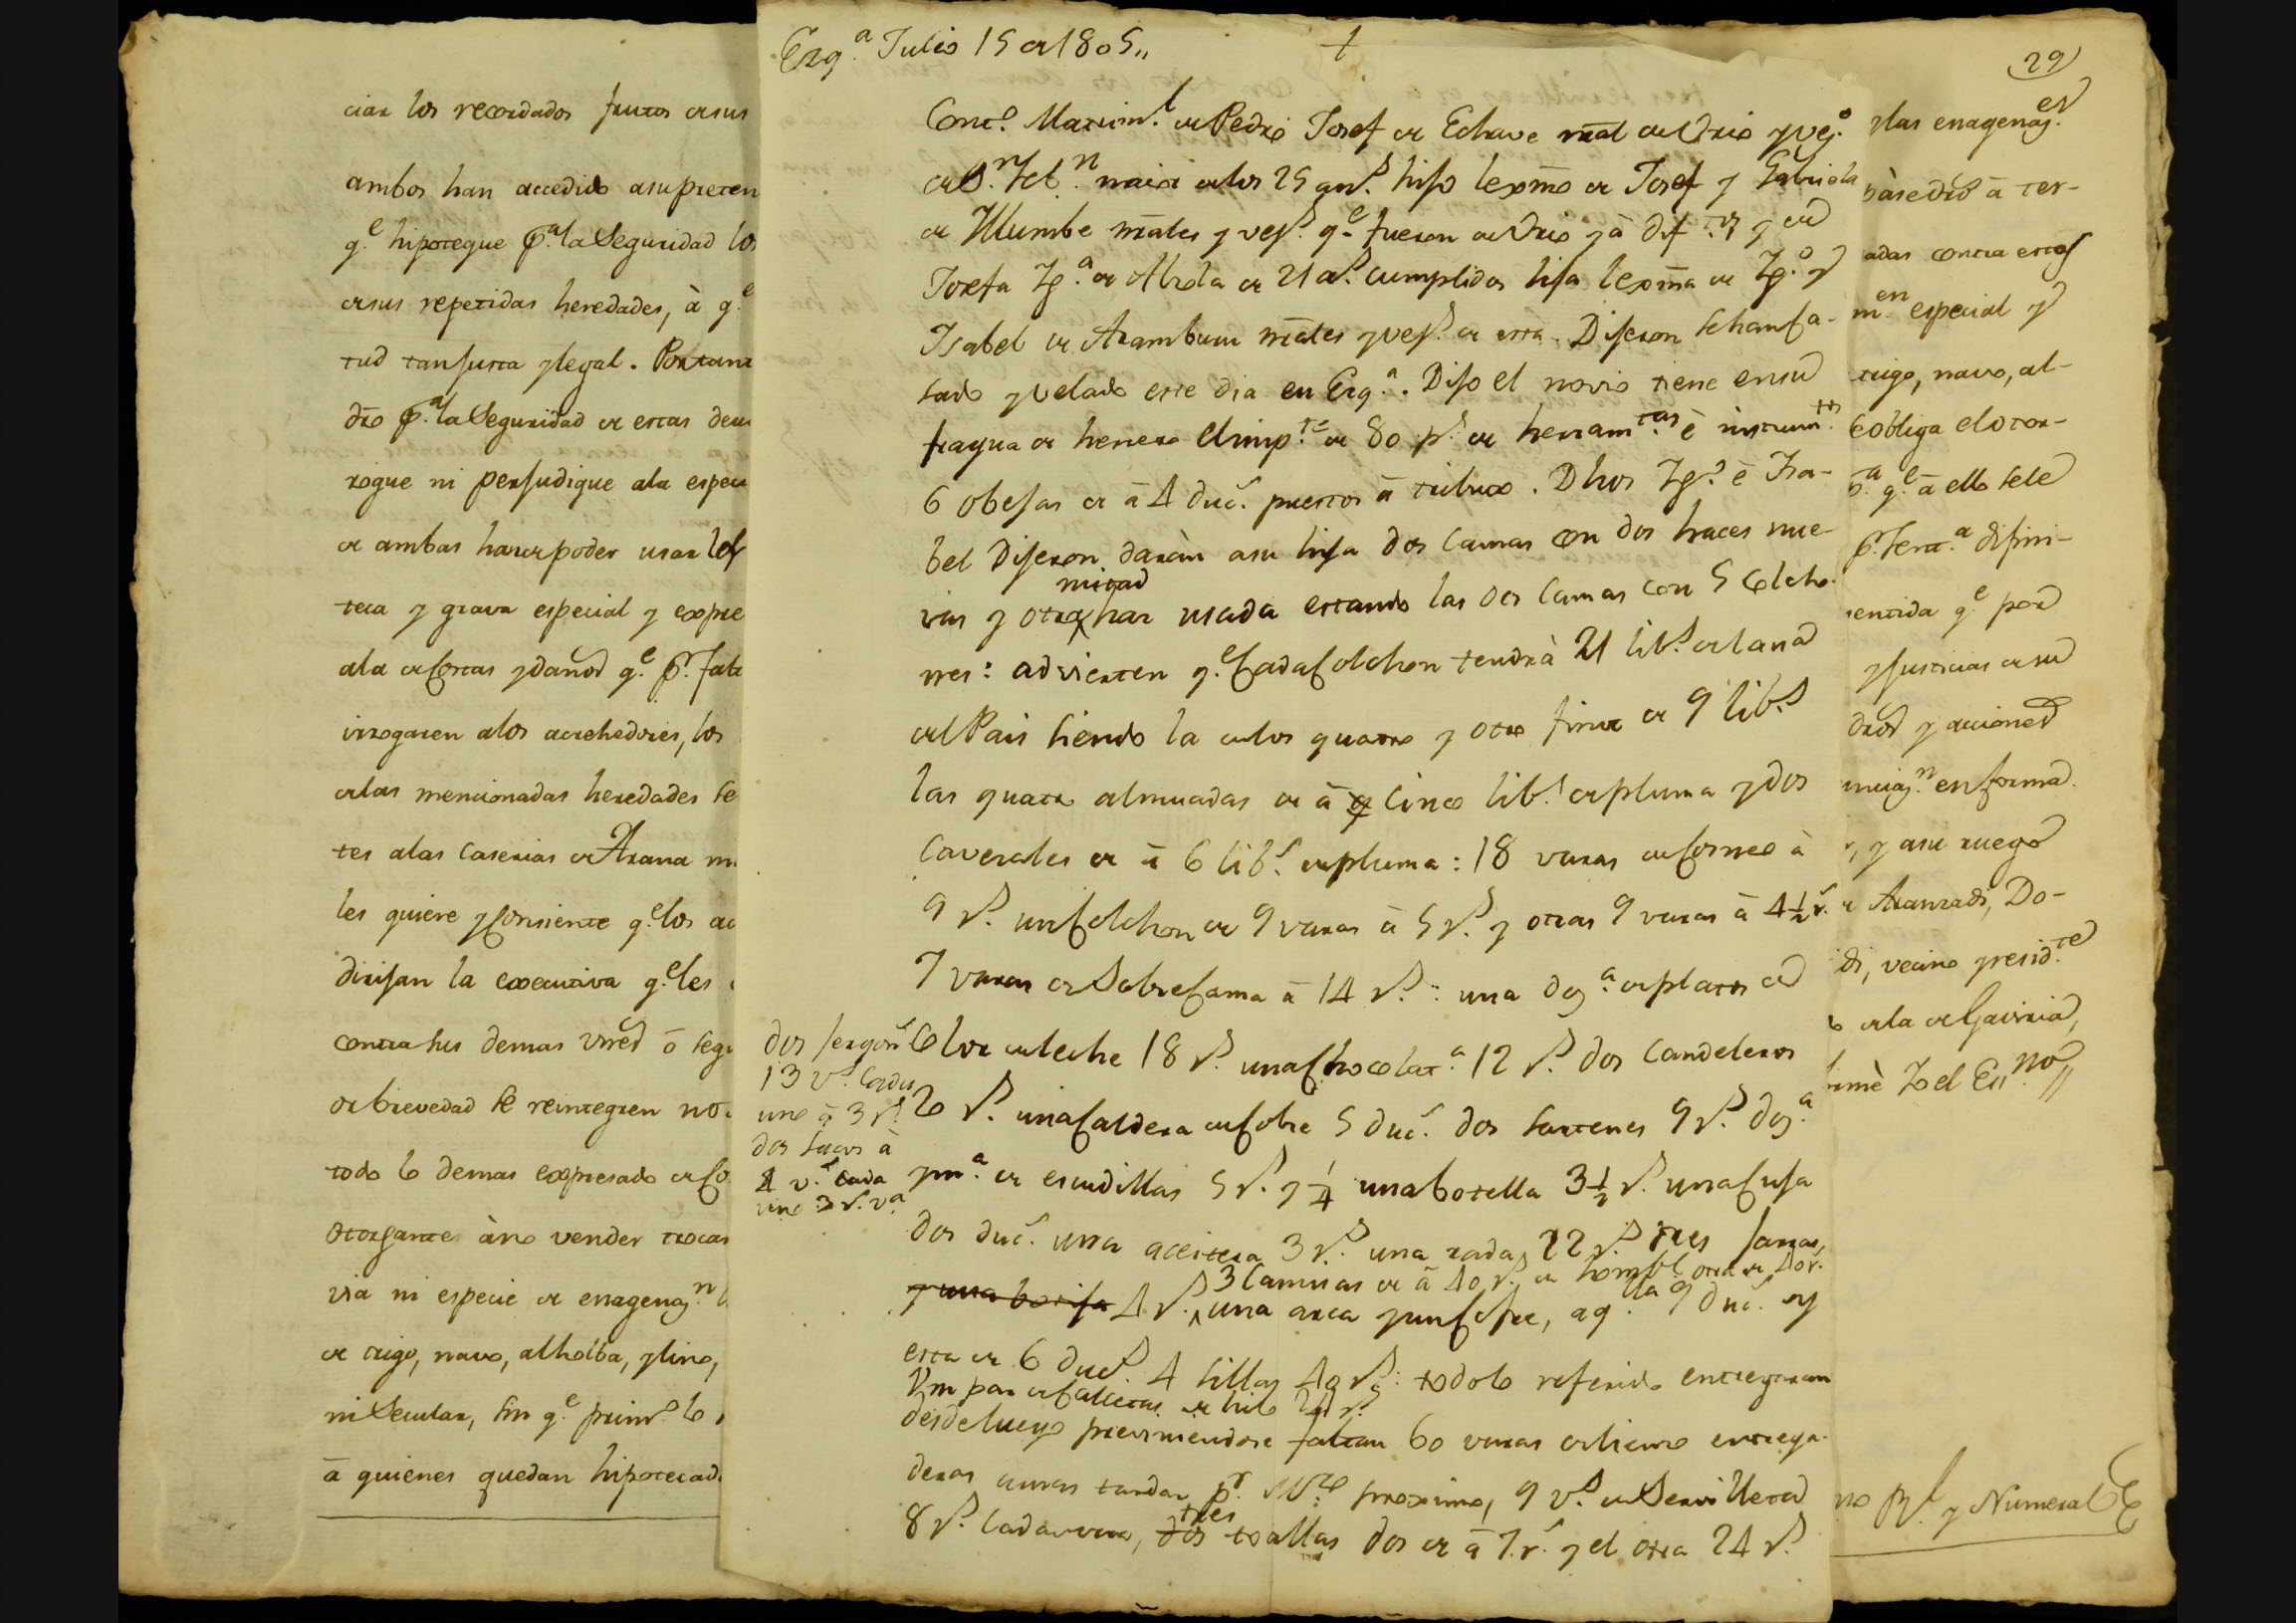 ciar los recordados frutos de sus
ambos han accedido a su preten
q.e hipoteque p.a la Seguridad los
de sus repetidas heredades, à q.e
tud tan justa y legal. Por tant
dro p.a la Seguridad de estas deu
rogue ni perjudique ala espec
de ambas haver poder usar
teca y grava especial y expre
ala de costas y daños q.e p.r falt
irrogaren alos acrehedores, los
delas mencionadas heredades se
tes alas Caserias de Arana
les quiere y Consiente q.e los ac
dirijan la executiva q.e les
contra sus demas vnes ò segu
de brevedad se reintegren no
todo lo demas expresado de Co
otorgante àno vender trocar
via ni especie de enagenaz.n
de trigo, navo, alholba, y lino,
ni Secular, sin q.e prim.o lo
à quienes quedan hipotecad
Ezq.a Julio 15 de 1805,,
+
Cont.o Matrim.l de Pedro Josef de Echave nral de Orio y vez.o
de S.n Seb.n maior delos 25 an.s hijo lexmo de Josef y Gabriela
de Illumbe nrales y vez.s q.e fueron de Orio
Josefa Ig.a de Alzola de 21 a.s cumplidos hija lexma de Ig.o y
Isabel de Aramburu nrales y vez.s de esta. Dijeron se han Ca-
sado y velado este dia en Ezq.a. Dijo el novio tiene en su
fragua de herrero el imp.te de 80 p.s de herram.tas è instrum.tos
6 obejas de à 4 duc.s puestos à tributo. Dhos Ig.o è Isa-
bel Dijeron daràn asu hija dos Camas con dos haces nue-
mitad
vas y otra haz usada estando las dos Camas con 5 Colcho-
nes: advierten q.e Cada Colchon tendrà 21 lib.s de lana
del Pais siendo la delos quatro y otro fino de 9 lib.s
las quatro almuadas de à Cinco lib.s de pluma y dos
Caverales de à 6 lib.s de pluma: 18 varas de Cotneo à
9 r.s un Colchon de 9 varas à 5 r.s y otras 9 varas à 4½ r.s
7 varas de Sobre Cama à 14 r.s: una doz.a de platos de
Color de leche 18 r.s una Chocolat.a 12 r.s dos Candeleros
20 r.s una Caldera de Cobre 5 duc.s dos sartenes 9 r.s doz.a
y m.a de escudillas 5 r.s y ¼ una botella 3½ r.s una Cuja
dos duc.s una aceitera 3 r.s una rada 22 r.s tres jarras,
3 Camisas de à 40 r.s de homb.e otra de 40 r.
y una botija 4 r.s, una arca y un Cofre, aq.lla 9 duc.s y
esta de 6 duc.s 4 sillas 40 r.s: todo lo referido entregaran
Vn par de Calcetas de hilo 24 r.s
desde luego previniendose faltan 60 varas de lienzo entrega-
deras amas tardar p.r proximo, 9 v.s de Servilletas
tres
8 r.s Cada vara, dos toallas dos de à 7 r.s y el otra 24 r.s
dos jergon.s
13 v.s Cada
uno à 3 r.s
dos sacos à
4 v.s Cada
uno 3 r.s v.a
29
y las enagenaz.es
adas contra estas
m.en especial y
trigo, navo, al-
Se obliga el otor-
p.a q.e à ello sele
p.r Sent.a difini-
sentida q.e por
y Justicias de su
dros y acciones
unciaz.n en forma.
, y asu ruego
de Aranzadi, Do-
di, vecino y resid.te
dela de Gaviria,
firmè Yo el Ess.no
no R.l y Numeral